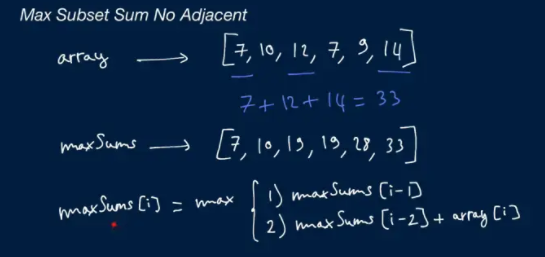 Max Subset Sum No Adjacent
array → [7, 10, 12, 7, 9, 14]
7 + 12 + 14 = 33
maxSums → [7, 10, 19, 19, 28, 33]
maxSums[i] = max { 1) maxSums[i-1]
2) maxSums[i-2] + array[i]